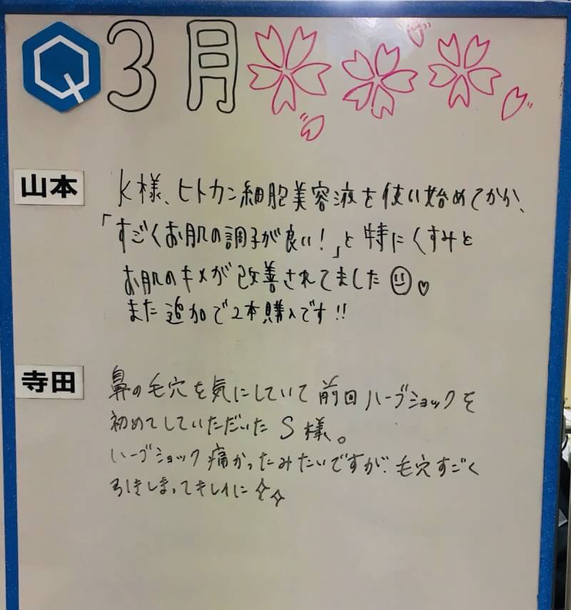 Q 3月
山本
K様、ヒトカン細胞美容液を使い始めてから、
「すごくお肌の調子が良い!」と特にくすみと
お肌のキメが改善されてました
また追加で2本購入です!!
寺田
鼻の毛穴を気にしていて前回ハーブショックを
初めてしていただいたS様。
ハーブショック痛かったみたいですが、毛穴すごく
引きしまってキレイに